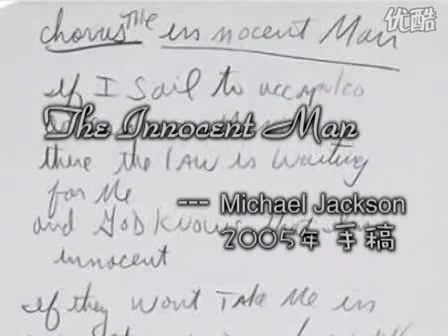 优酷
chorus The innocent Man
if I Sail to accapulco
The Innocent Man
there the law is waiting
for Me
--- Michael Jackson
and GOD Knows
2005年 手稿
innocent
if they wont Take Me in